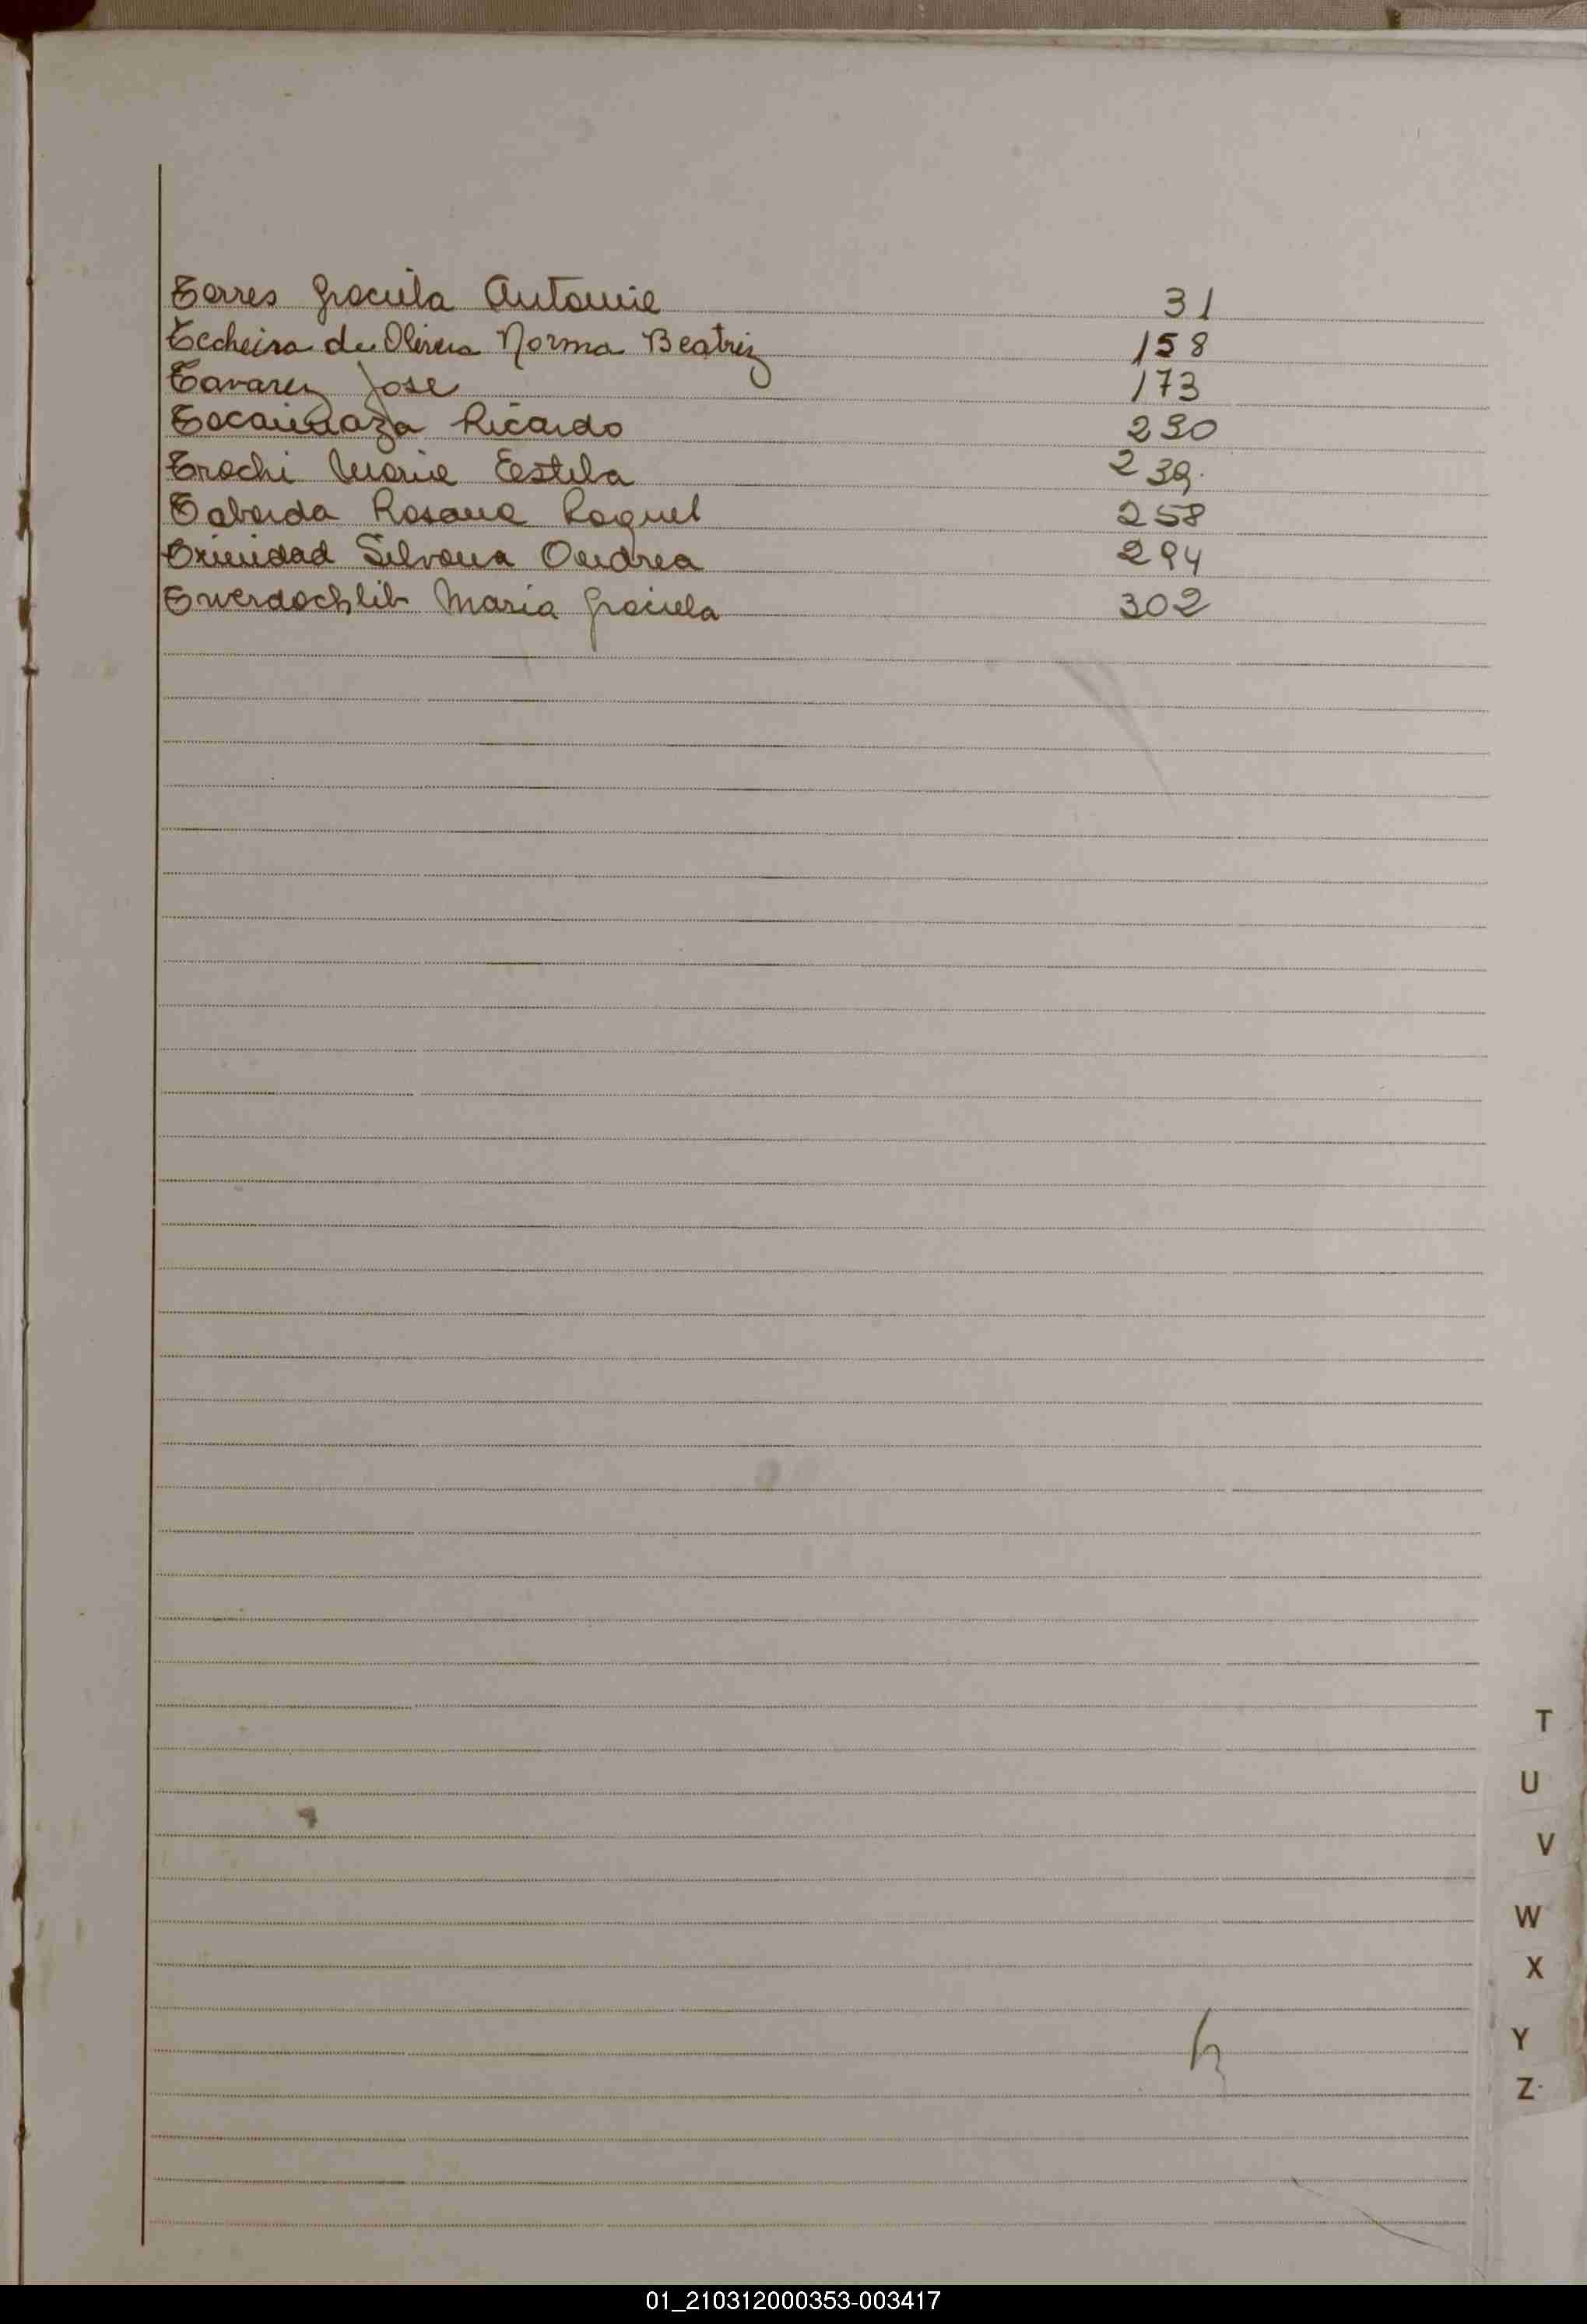 Torres Graciela Antonia 31
Techeira de Olivera Norma Beatriz 158
Tavarez Jose 173
Ricardo 230
Trochi Maria Estela 239.
Taborda Rosana Raquel 258
Trinidad Silvana Andrea 294
Twerdochlib Maria Graciela 302
T
U
V
W
X
Y
Z
01_210312000353-003417